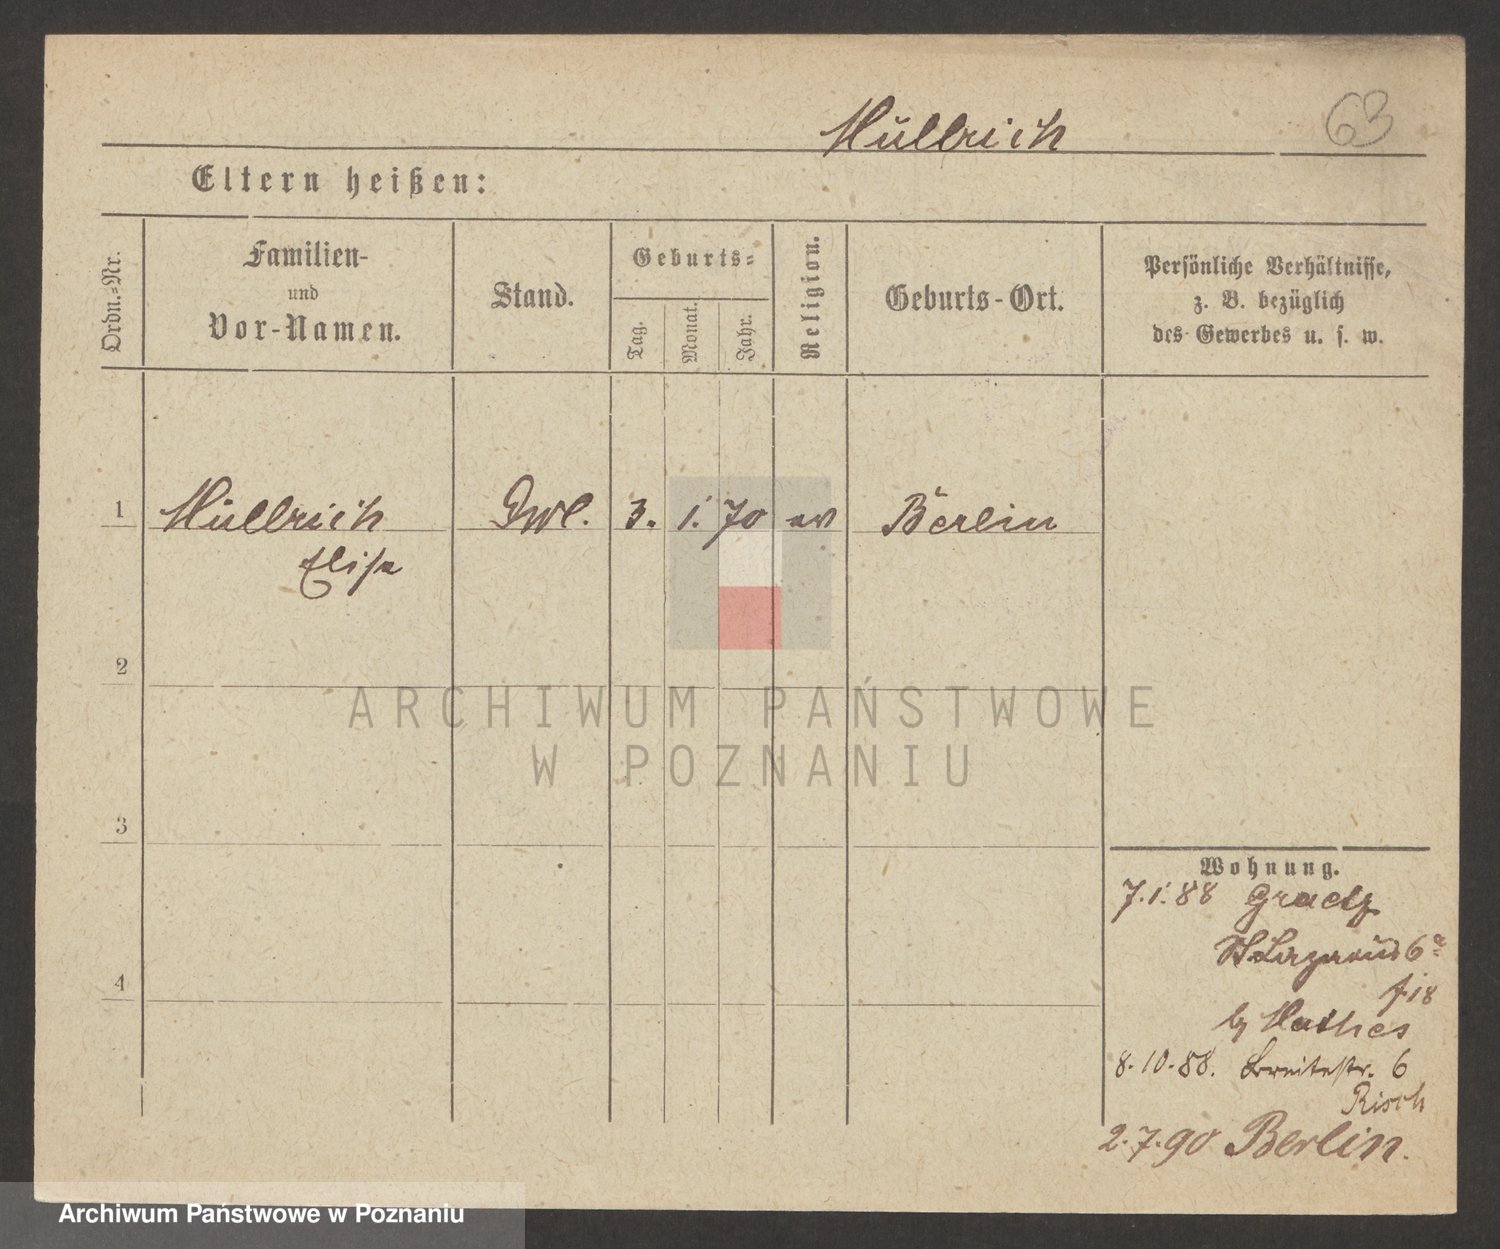 Müllrich
63
Eltern heißen:
Ordn.-Nr.
Familien-
und
Vor-Namen.
Stand.
Geburts-
Tag.
Monat.
Jahr.
Religion.
Geburts-Ort.
Persönliche Verhältnisse,
z. B. bezüglich
des Gewerbes u. s. w.
1 Müllrich 3. 1. 70 ev Berlin
Elise
2
3
4
ARCHIWUM PAŃSTWOWE
W POZNANIU
Wohnung.
7.1.88 Graetz
St Lazarus 6a
by Mathes
8.10.88. Breitestr. 6
Risch
2.7.90 Berlin.
Archiwum Państwowe w Poznaniu